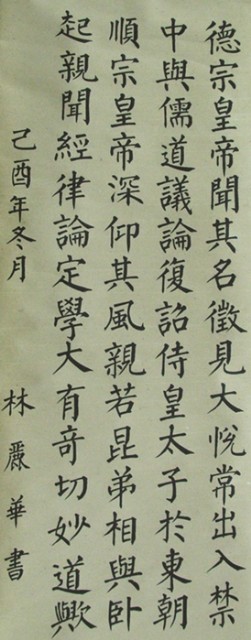 德宗皇帝聞其名徵見大悅常出入禁
中與儒道議論復詔侍皇太子於東朝
順宗皇帝深仰其風親若昆弟相與卧
起親聞經律論定學大有奇切妙道歟
己酉年冬月
林麗華書